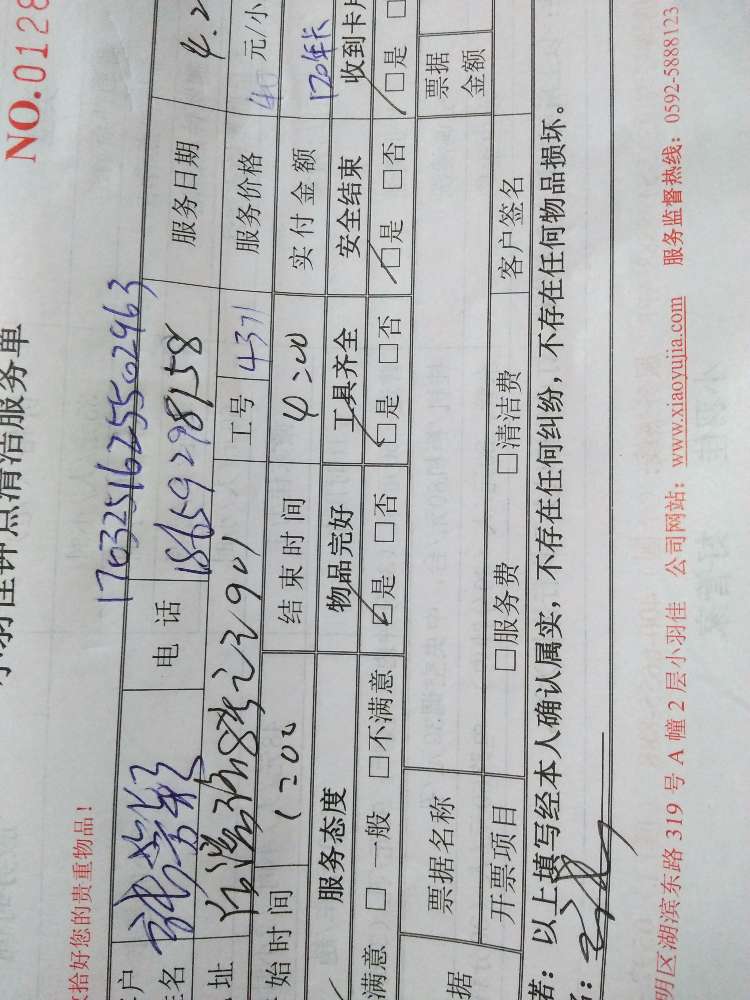 NO.0128
小羽佳钟点清洁服务单
收拾好您的贵重物品!
17032516255502963
电话 18659298158 服务日期 4.2
901 工号 4371 服务价格 40 元/小
始时间 1:00 结束时间 4:00 实付金额 120年卡
服务态度 物品完好 工具齐全 安全结束 收到卡片
满意 □ 一般 □不满意 □是 □否 □是 □否 □是 □否 □是 □
票据名称 票据金额
据 开票项目 □服务费 □清洁费 客户签名
若:以上填写经本人确认属实,不存在任何纠纷,不存在任何物品损坏。
明区湖滨东路 319 号 A 幢 2 层小羽佳 公司网站:www.xiaoyujia.com 服务监督热线:0592-5888123